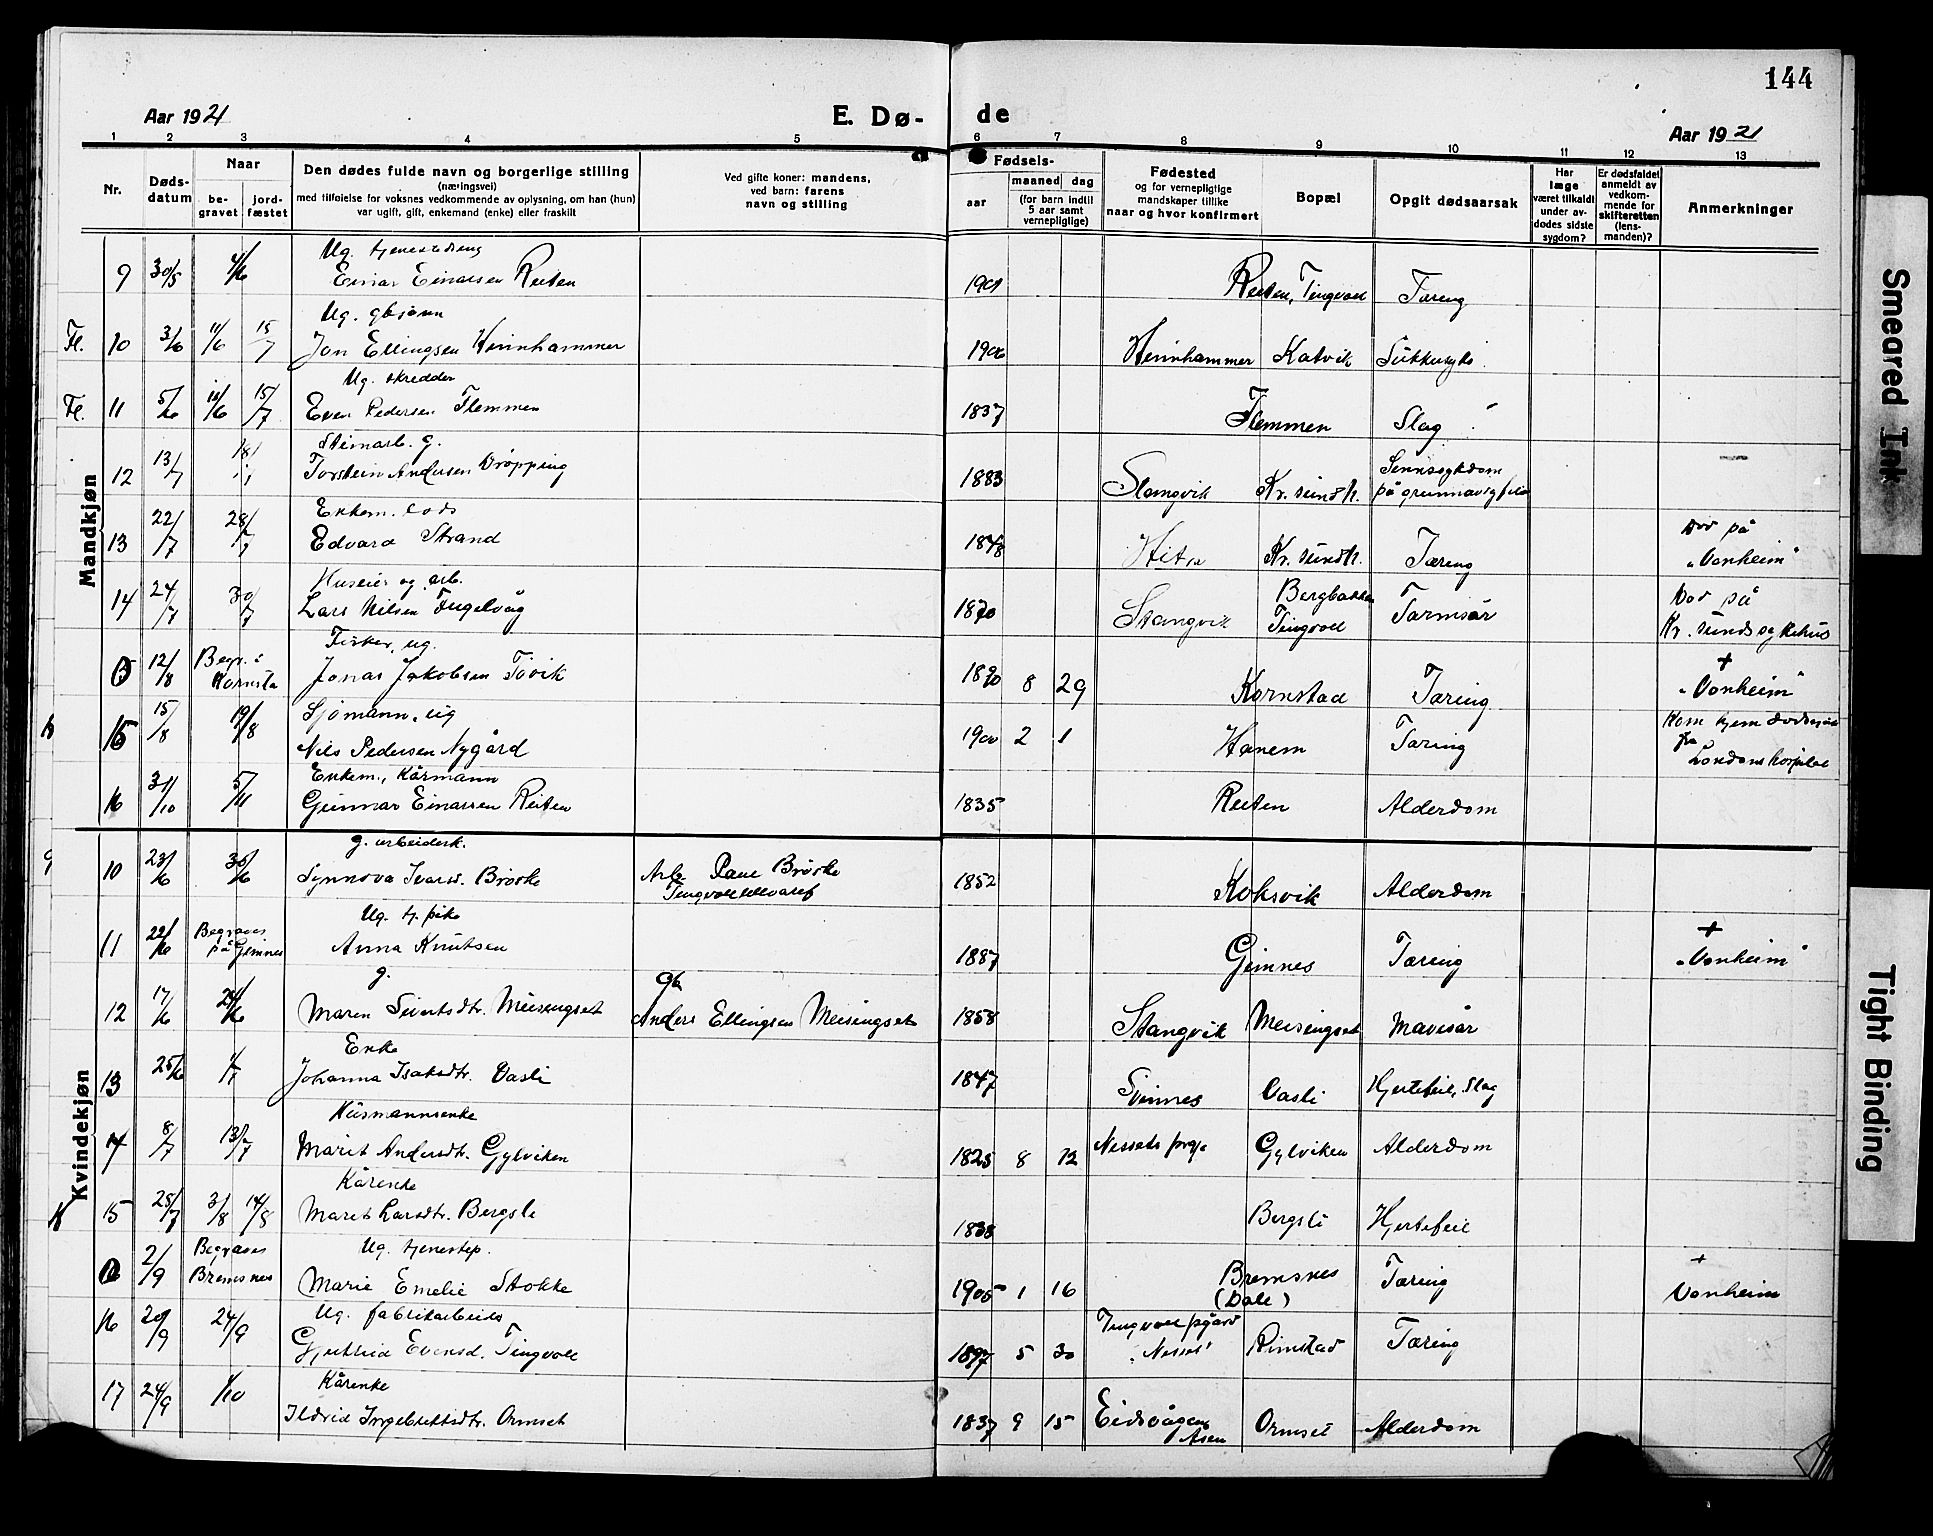 144
Aar 1921
E. Dø-
de
Aar 1921
1 2 3 4 5 6 7 8 9 10 11 12 13
Nr.
Døds-
datum
Naar
be-
gravet
jord-
fæstet
Den dødes fulde navn og borgerlige stilling
(næringsvei)
med tilføielse for voksnes vedkommende av oplysning, om han (hun)
var ugift, gift, enkemand (enke) eller fraskilt
Ved gifte koner: mandens,
ved barn: farens
navn og stilling
Fødsels-
aar
maaned
dag
(for barn indtil
5 aar samt
vernepligtige)
Fødested
og for vernepligtige
mandskaper tillike
naar og hvor konfirmert
Bopæl
Opgit dødsaarsak
Har
læge
været tilkaldt
under av-
dødes sidste
sygdom?
Er dødsfaldet
anmeldt av
vedkom-
mende for
skifteretten
(lens-
manden)?
Anmerkninger
Mandkjøn
Ug. tjenestedreng
9 30/5 4/6 Einar Einarsen Reiten 1901 Reiten, Tingvoll Tæring
Ug. gbrsønn
Fl. 10 3/6 11/6 15/7 Jon Ellingsen Hennhammer 1906 Hennhammer Katvik Sukkersyke
Ug. skredder
Fl. 11 5/6 11/6 15/7 Even Pedersen Flemmen 1837 Flemmen Slag
Steinarb. g.
12 13/7 18/7 Torstein Andersen Drøpping 1883 Stangvik Kr. sund N. Sinnssykdom
Enkem. Lods
13 22/7 28/7 Edvard Strand 1848 Hitra Kr. sund N. Tæring Død på
"Vonheim"
Huseier og arb.
14 24/7 30/7 Lars Nilsen Fugelvåg 1870 Stangvik Bergbakken
Tingvoll Tarmsår Død på
Kr. sunds sykehus
Fisker, ug.
12/8 Begr. i
Kornsta Jonas Jakobsen Tøvik 1890 8 29 Kornstad Tæring +
"Vonheim"
Sjømann, ug
15 15/8 19/8 Nils Pedersen Nygård 1900 2 1 Hanem Tæring Kom hjem dødssyk
fra
Londons hospital
Enkem., Kårmann
16 31/10 5/11 Gunnar Einarsen Reiten 1835 Reiten Alderdom
Kvindekjøn
g. arbeiderk.
10 23/6 30/6 Synnøva Ivarsd. Brøske Arb. Paul Brøske
1852 Koksvik Alderdom
Ug. tj. pike
11 22/6 Begraves
på Gimnes Anna Knutsen 1887 Gimnes Tæring +
"Vonheim"
g. Gb.
12 17/6 24/6 Maren Sivertsdtr. Meisingset Anders Ellingsen Meisingset 1858 Stangvik Meisingset Mavesår
Enke
13 25/6 1/7 Johanna Isaksdtr. Vasli 1847 Svinnes Vasli Hjertefeil, Slag
Husmannsenke
14 8/7 13/7 Marit Andersdtr. Gylviken 1825 8 12 Nessets prgj. Gylviken Alderdom
Kårenke
15 28/7 3/8 14/8 Marit Larsdtr. Bergsli 1838 Bergsli Hjertefeil
Ug. tjenestep.
2/9 Begraves
Bremsnes Marie Emelie Stokke 1905 1 16 Bremsnes
(Dale) Tæring +
Vonheim
Ug. fabrikarbeids
16 20/9 24/9 Gjertrud Evensd. Tingvoll 1897 5 30 Tingvoll pgård
"Nesset" Rimstad Tæring
Kårenke
17 24/9 1/10 Ildrid Ingebrettsdtr. Ormset 1837 9 15 Eidsvågen
Åsen Ormset Alderdom
Smeared Ink
Tight Binding